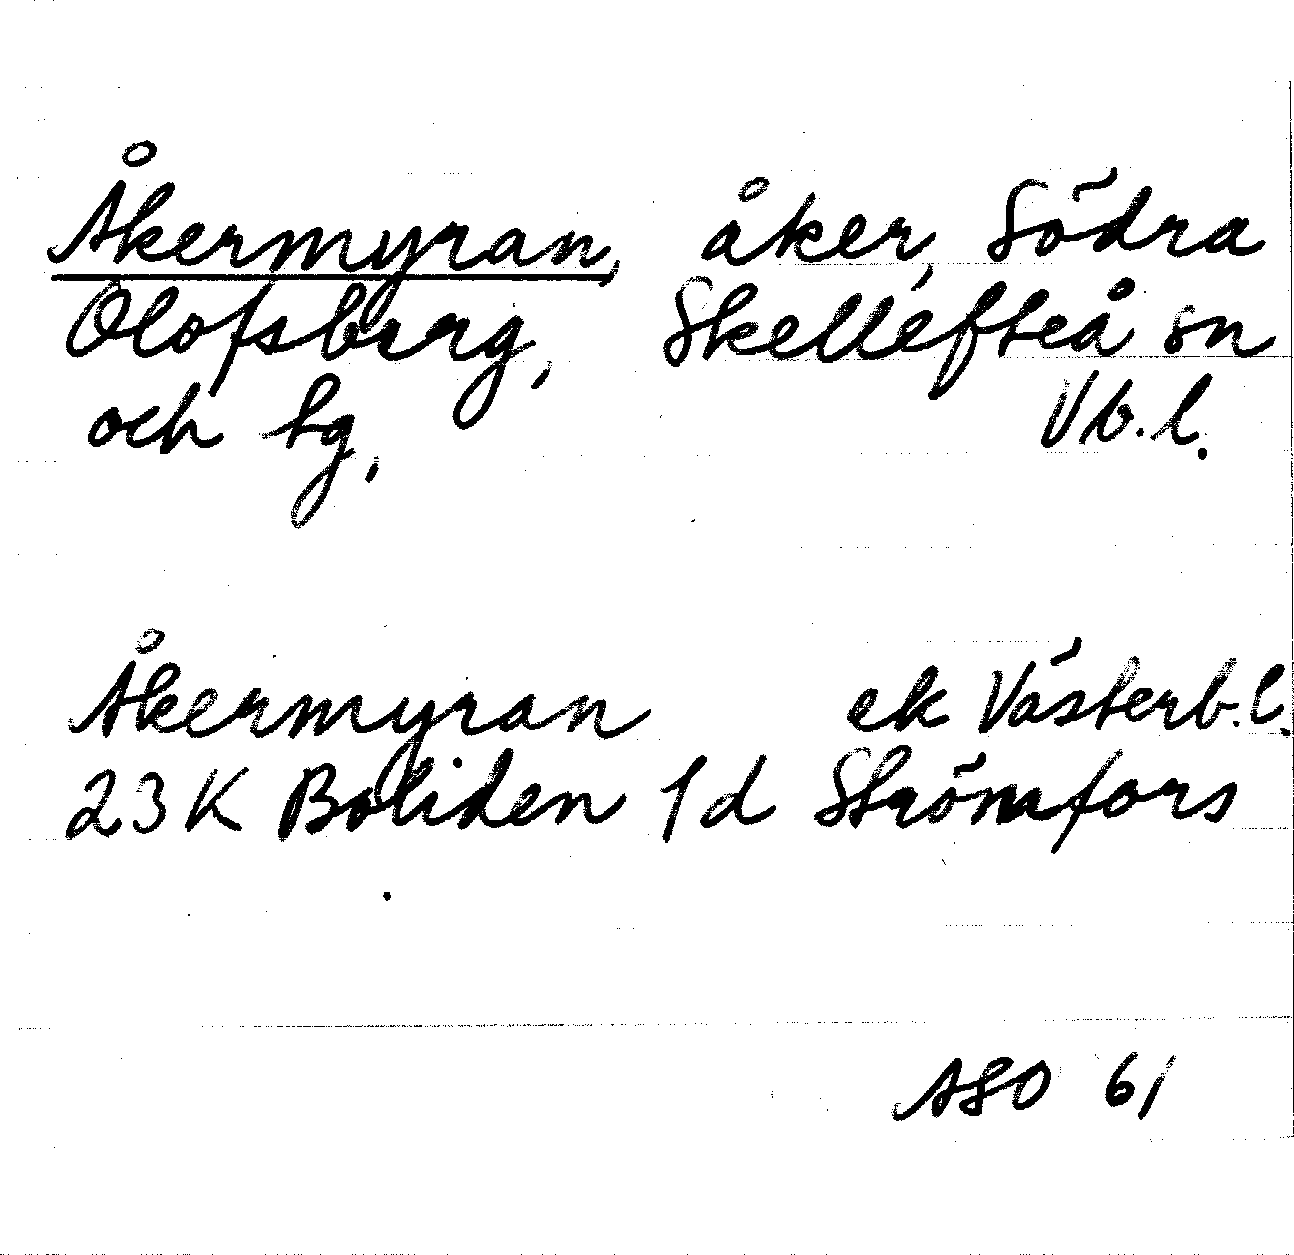 Åkermyran, åker, Södra
Olofsberg, Skellefteå sn
och hg, Vb.l.
Åkermyran ek Västerb.l.
23 K Boliden 1d Strömfors
ASO 61